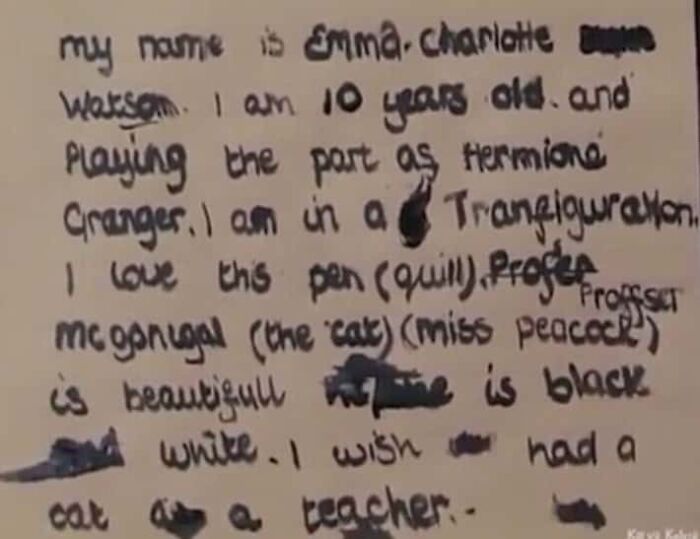 my name is Emma. Charlotte
Watson. I am 10 years old. and
Playing the part as Hermione
Granger. I am in a Tranfiguration.
I love this pen (quill). Profer
Proffser
mcgonugal (the cat) (miss peacock)
is beautifull is black
white. I wish had a
cat a teacher.-